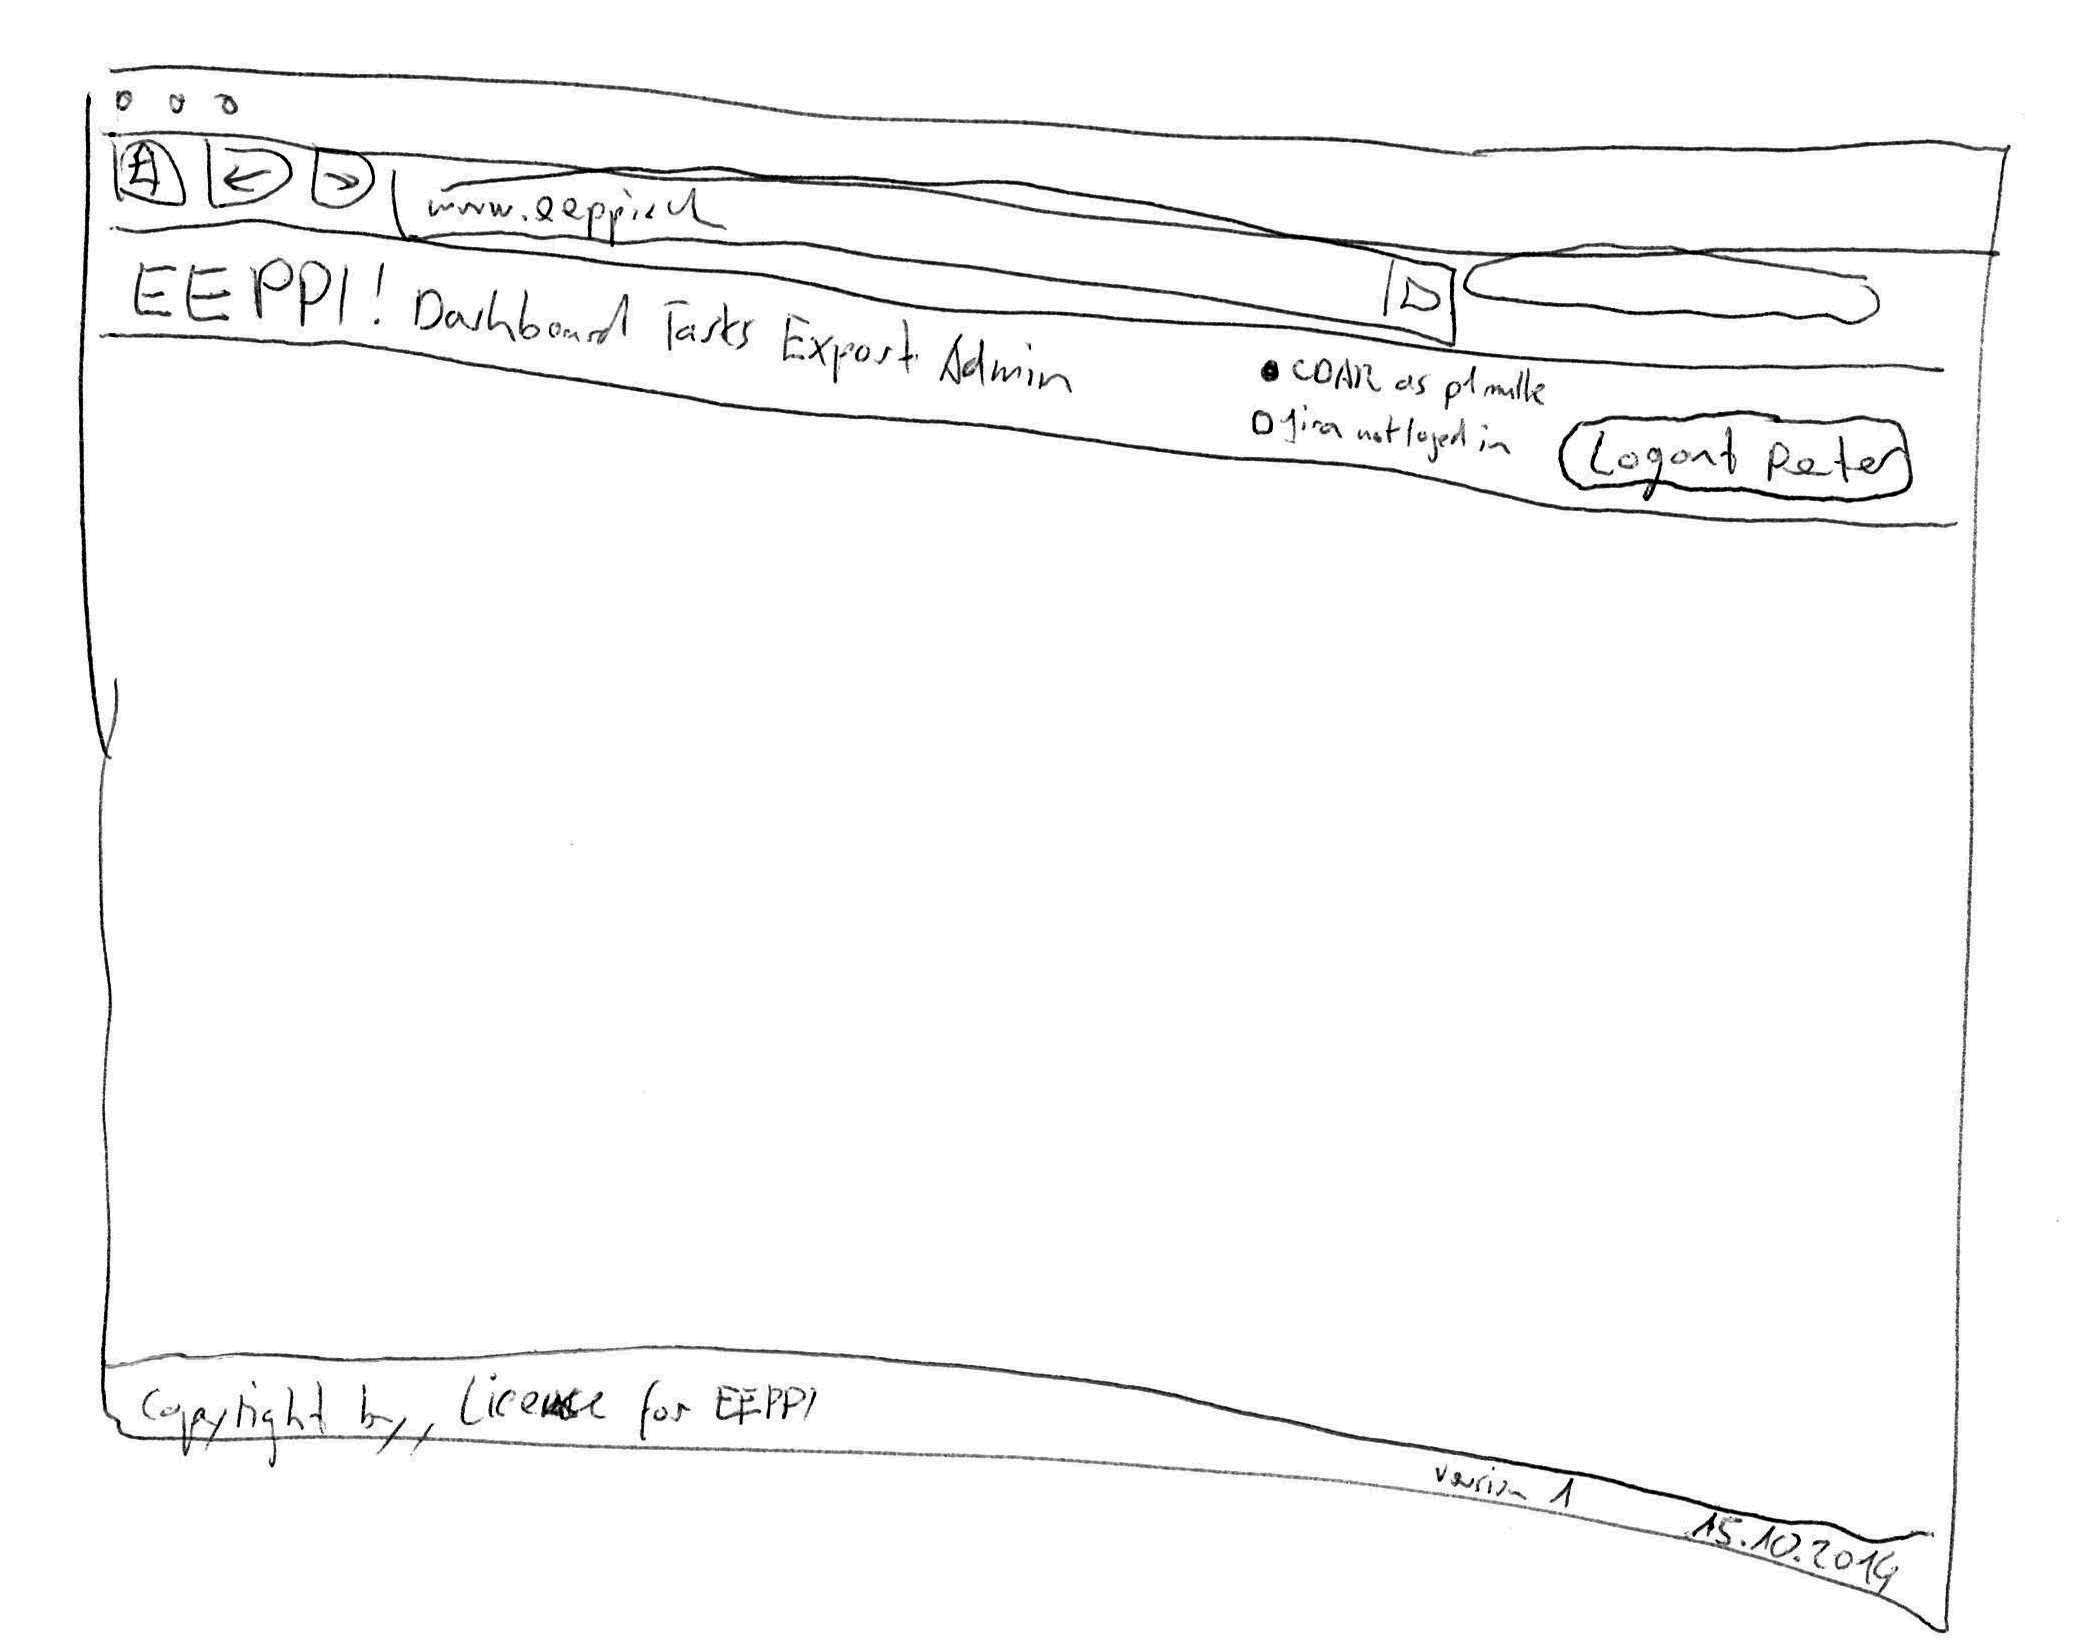 www.eeppi.ch
EEPPI! Dashboard Tasks Export Admin
CDAR as plmulle
Jira not loged in
Logout Peter
Copyright by,, License for EEPPI
version 1
15.10.2014